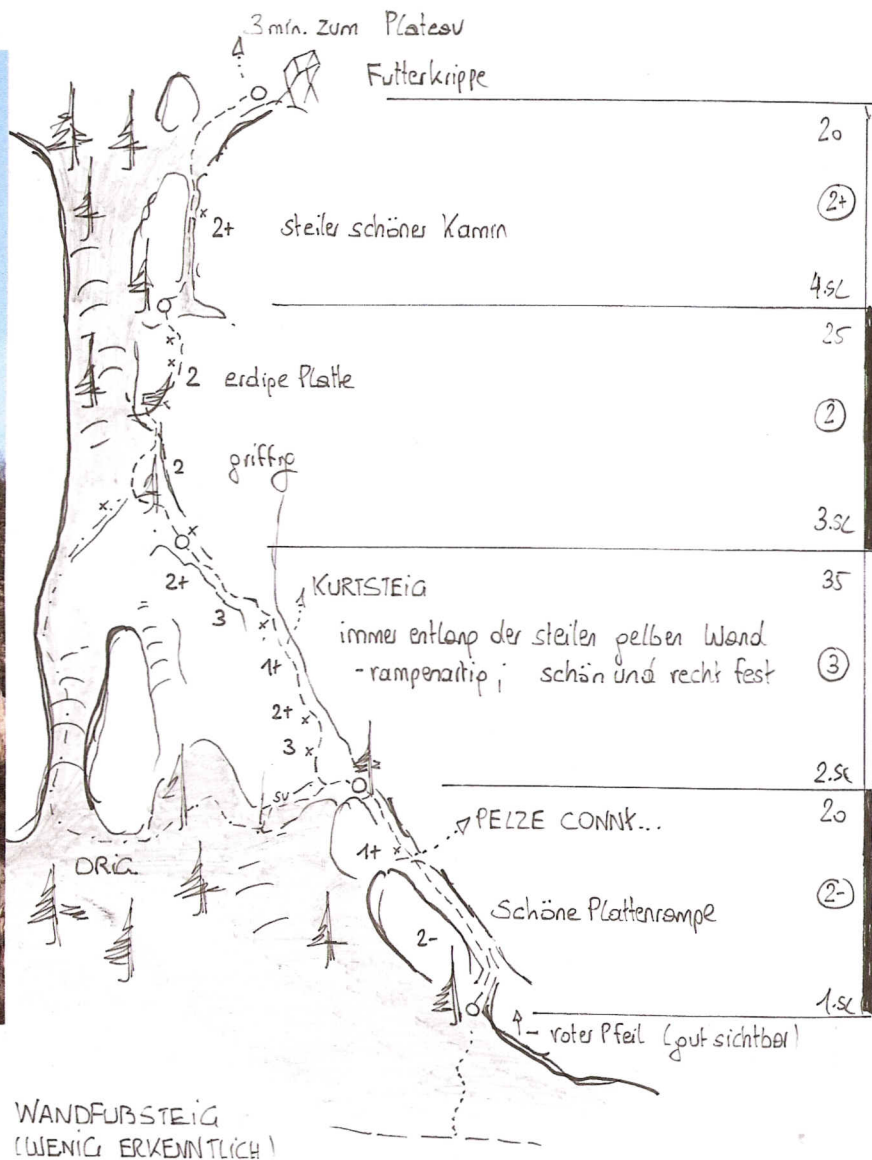 3 min. zum Plateau
Futterkrippe
20
2+
2+ steiler schöner Kamin
4.SL
25
2 erdige Platte
2
2 griffig
3.SL
2+
35
KURTSTEIG
3
immer entlang der steilen gelben Wand
1+
- rampenartig; schön und recht fest
3
2+
3
2.SL
SU
20
PELZE CONNY...
1+
ORIG.
2-
Schöne Plattenrampe
2-
1.SL
roter Pfeil (gut sichtbar)
WANDFUßSTEIG
(WENIG ERKENNTLICH)